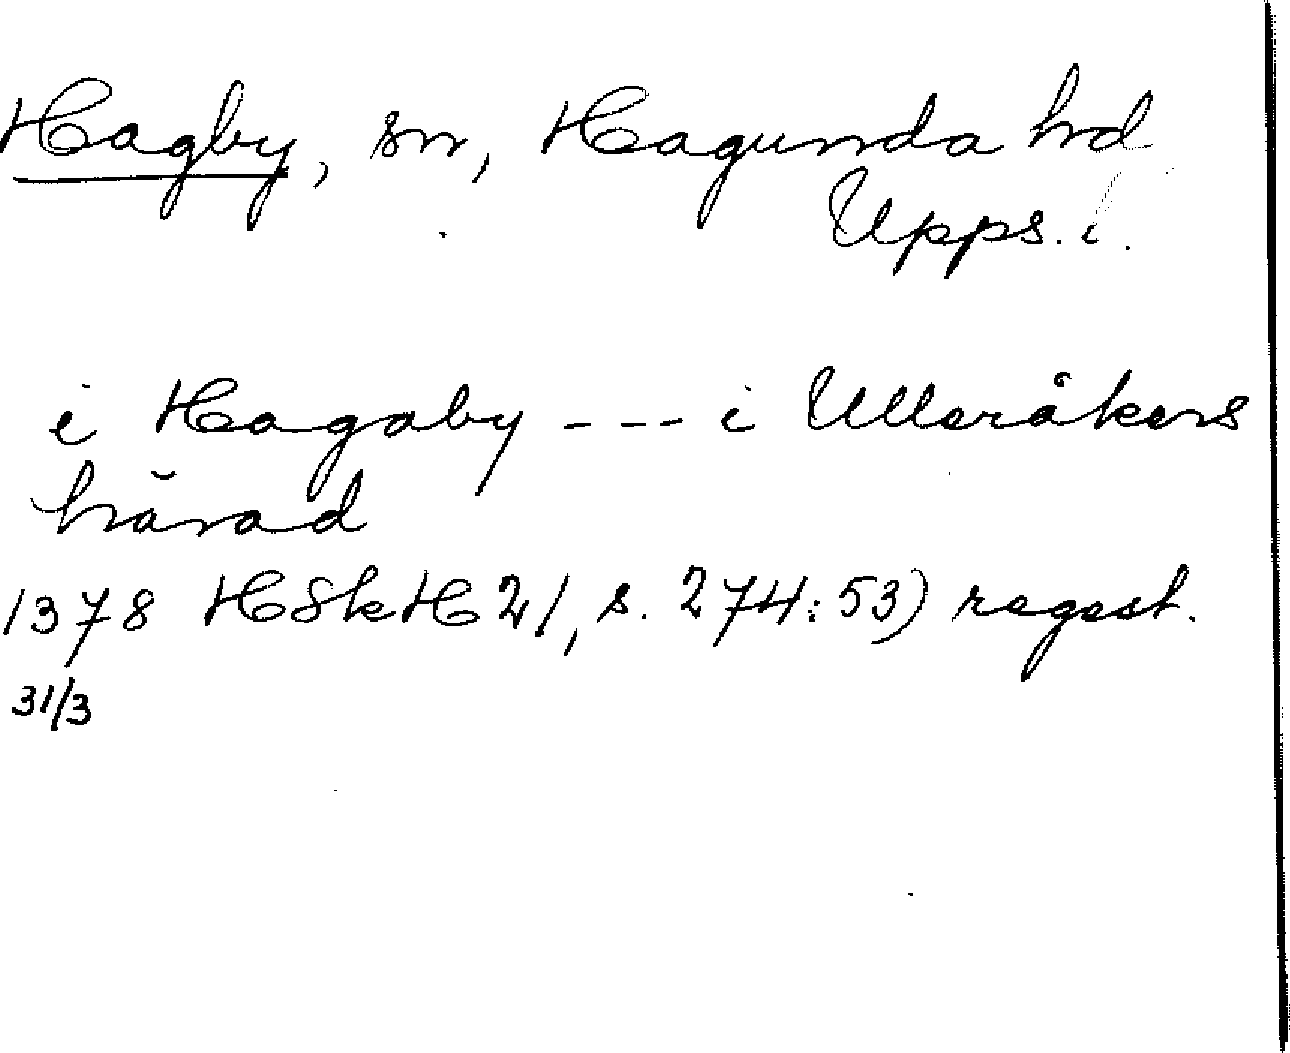 Hagby, sn, Hagunda hd
Upps. l.
i Hagaby --- i Ulleråkers
härad
1378 HSkH 21, s. 274:53) regest.
31/3